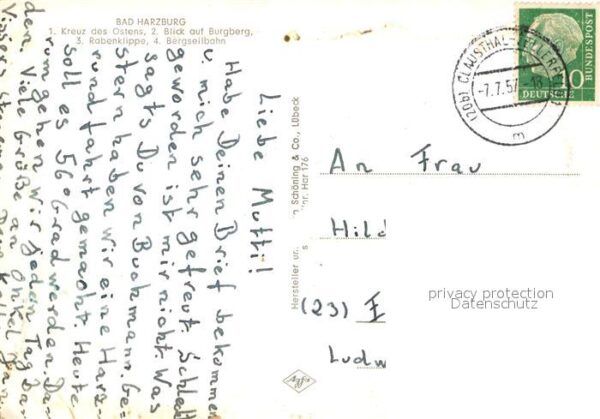 BAD HARZBURG
1. Kreuz des Ostens, 2. Blick auf Burgberg,
3. Rabenklippe, 4. Bergseilbahn
Liebe Mutti!
Habe Deinen Brief bekommen
u. mich sehr gefreut. Schlecht
geworden ist mir nicht. Was
sagts Du von Buchmann. Ge-
stern haben wir eine Harz-
rundfahrt gemacht. Heute
soll es 56 Grad werden. Da-
rum gehen wir jeden Tag Ba-
den. Viele Grüße an Onkel
Schöning & Co., Lübeck
nr. Har 176
Hersteller u.
Agfa
(20b) CLAUSTHAL-ZELLERFELD 1
-7.7.57
m
10
DEUTSCHE
BUNDESPOST
An Frau
Hild
(23)
Ludw
privacy protection
Datenschutz